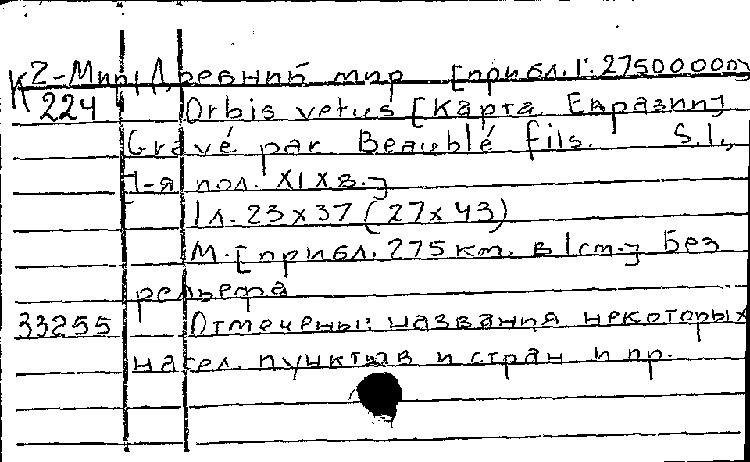 К 2-Мир, Древний мир [прибл. 1:27500000]
224 Orbis vetus [Карта Евразии]
Gravé par Beaublé fils. S.l.,
[1-я пол. XIX в.]
1 л. 23х37 (27х43)
М. [прибл. 275 км. в 1 см.] Без
рельефа
33255 Отмечены: названия некоторых
насел. пунктов и стран и пр.